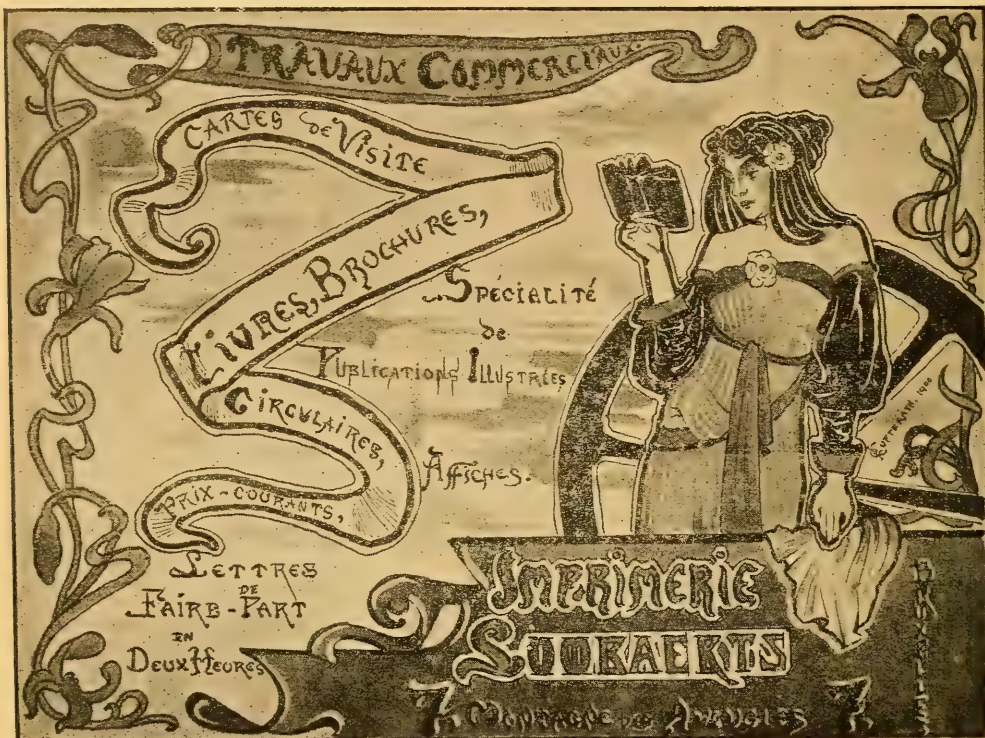 TRAVAUX COMMERCIAUX
CARTES DE VISITE
LIVRES, BROCHURES,
CIRCULAIRES,
PRIX-COURANTS,
SPÉCIALITÉ
de
PUBLICATIONS ILLUSTRÉES
AFFICHES.
LETTRES
DE
FAIRE-PART
EN
DEUX HEURES
IMPRIMERIE
7, MONTAGNE DES AVEUGLES 7,